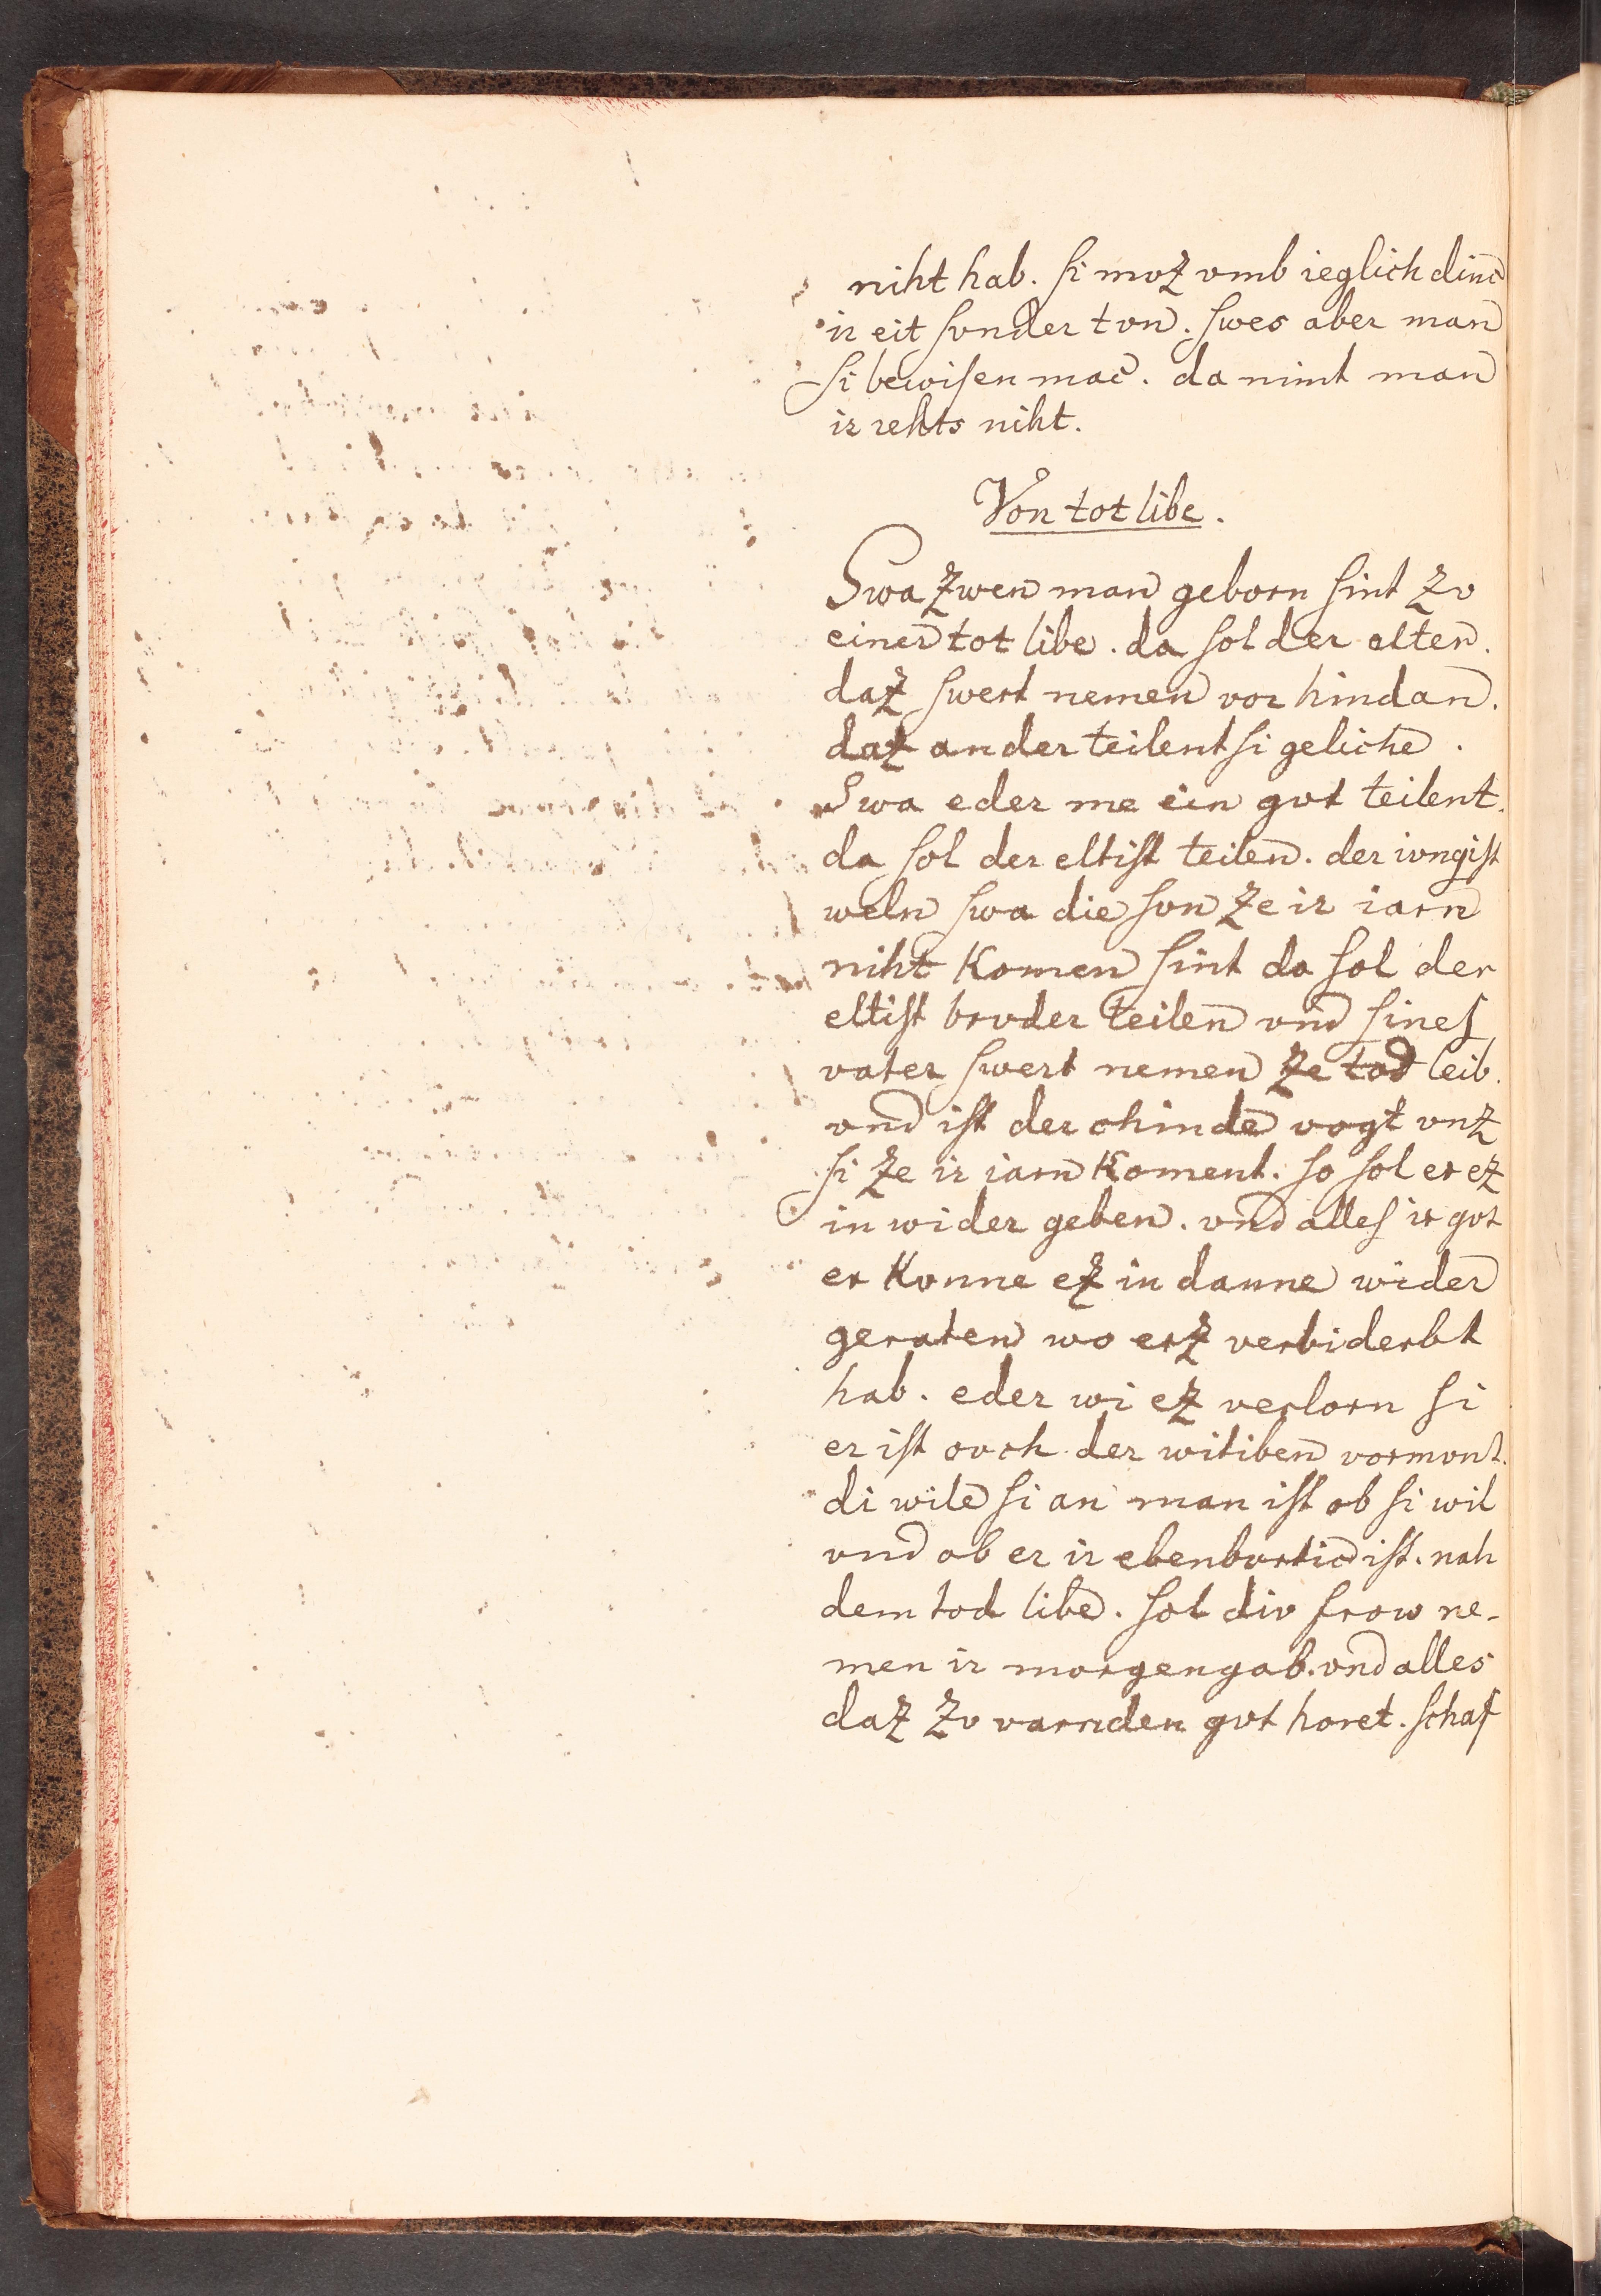 niht hab. ſi mvz vmb ieglich dinc
ir eit ſvnder tvn. ſwes aber man
ſi bewiſen mac. da nimt man
ir rehts niht.
Von tot libe.
Swa zwen man geborn ſint zv
einer tot libe. da ſol der alter.
daz ſwert nemen vor hindan.
daz ander teilent ſi geliche.
Swa eder me ein gvt teilent.
da ſol der eltiſt teilen. der ivngiſt
weln ſwa die ſvn ze ir iarn
niht Komen ſint da ſol der
eltiſt brvder teilen vnd ſineſ
vater ſwert nemen ze tod leib.
vnd iſt der chinde vogt vnz
ſi ze ir iarn Koment. ſo ſol er ez
in wider geben. vnd alleſ ir gvt
er Kvnne ez in danne wider
geraten wo erz verbiderbt
hab. eder wi ez verlorn ſi
er iſt ovch der witiben vormvnt.
di wile ſi an man iſt ob ſi wil
vnd ob er ir ebenbvrtic iſt. nah
dem tod libe. ſol div frow ne-
men ir morgengab. vnd alles
daz zv varnden gvt horet. ſchaf